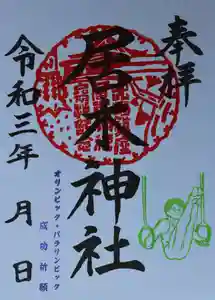 奉拝
居木神社
令和三年 月 日
オリンピック・パラリンピック
成功祈願